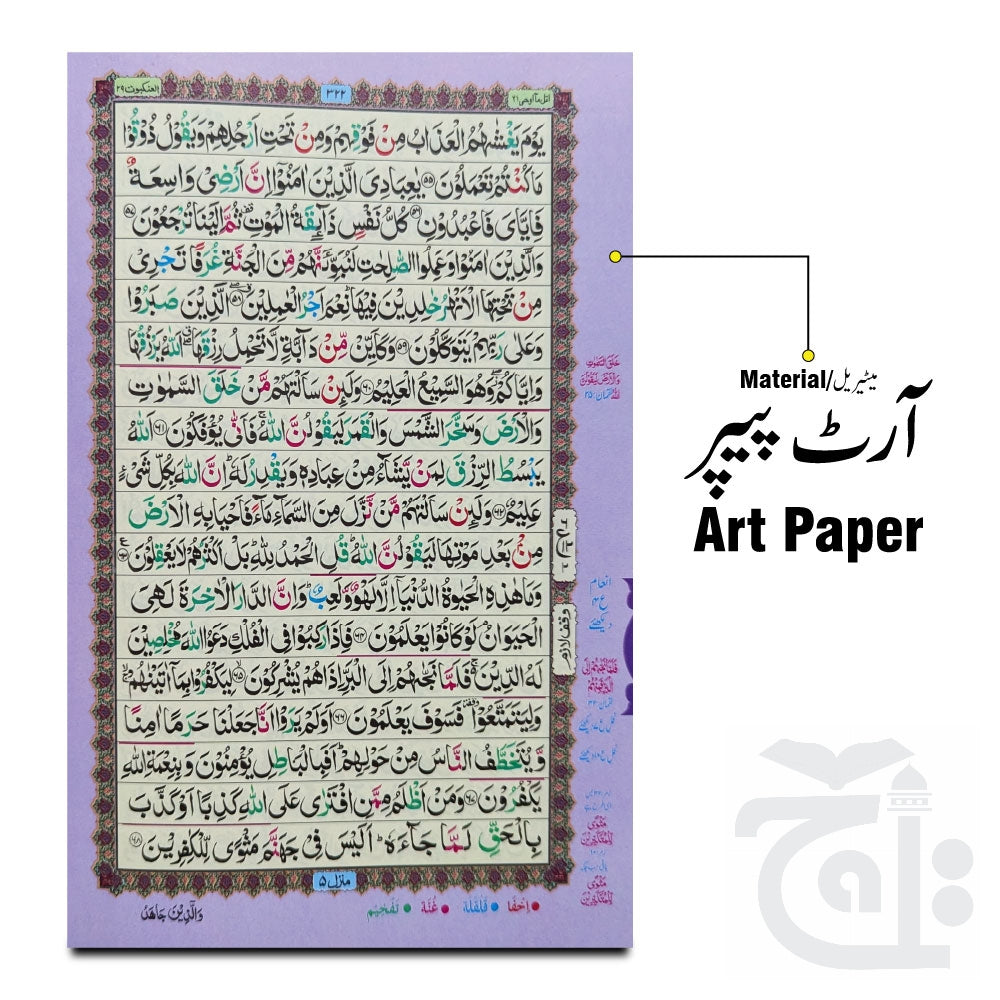 اتل مآ اوحی ۲۱
۳۲۲
العنکبوت ۲۹
یَوْمَ یَغْشٰىهُمُ الْعَذَابُ مِنْ فَوْقِهِمْ وَمِنْ تَحْتِ اَرْجُلِهِمْ وَیَقُوْلُ ذُوْقُوْا
مَا كُنْتُمْ تَعْمَلُوْنَ ۝۵۵ یٰعِبَادِیَ الَّذِیْنَ اٰمَنُوْۤا اِنَّ اَرْضِیْ وَاسِعَةٌ
فَاِیَّایَ فَاعْبُدُوْنِ ۝۵۶ كُلُّ نَفْسٍ ذَآىِٕقَةُ الْمَوْتِ ثُمَّ اِلَیْنَا تُرْجَعُوْنَ ۝۵۷
وَالَّذِیْنَ اٰمَنُوْا وَعَمِلُوا الصّٰلِحٰتِ لَنُبَوِّئَنَّهُمْ مِّنَ الْجَنَّةِ غُرَفًا تَجْرِیْ
مِنْ تَحْتِهَا الْاَنْهٰرُ خٰلِدِیْنَ فِیْهَا نِعْمَ اَجْرُ الْعٰمِلِیْنَ ۝۵۸ الَّذِیْنَ صَبَرُوْا
وَعَلٰی رَبِّهِمْ یَتَوَكَّلُوْنَ ۝۵۹ وَكَاَیِّنْ مِّنْ دَآبَّةٍ لَّا تَحْمِلُ رِزْقَهَا اَللّٰهُ یَرْزُقُهَا
وَاِیَّاكُمْ وَهُوَ السَّمِیْعُ الْعَلِیْمُ ۝۶۰ وَلَىِٕنْ سَاَلْتَهُمْ مَّنْ خَلَقَ السَّمٰوٰتِ
وَالْاَرْضَ وَسَخَّرَ الشَّمْسَ وَالْقَمَرَ لَیَقُوْلُنَّ اللّٰهُ فَاَنّٰی یُؤْفَكُوْنَ ۝۶۱ اَللّٰهُ
یَبْسُطُ الرِّزْقَ لِمَنْ یَّشَآءُ مِنْ عِبَادِهٖ وَیَقْدِرُ لَهٗ اِنَّ اللّٰهَ بِكُلِّ شَیْءٍ
عَلِیْمٌ ۝۶۲ وَلَىِٕنْ سَاَلْتَهُمْ مَّنْ نَّزَّلَ مِنَ السَّمَآءِ مَآءً فَاَحْیَا بِهِ الْاَرْضَ
مِنْ بَعْدِ مَوْتِهَا لَیَقُوْلُنَّ اللّٰهُ قُلِ الْحَمْدُ لِلّٰهِ بَلْ اَكْثَرُهُمْ لَا یَعْقِلُوْنَ ۝۶۳
وَمَا هٰذِهِ الْحَیٰوةُ الدُّنْیَاۤ اِلَّا لَهْوٌ وَّلَعِبٌ وَاِنَّ الدَّارَ الْاٰخِرَةَ لَهِیَ
الْحَیَوَانُ لَوْ كَانُوْا یَعْلَمُوْنَ ۝۶۴ فَاِذَا رَكِبُوْا فِی الْفُلْكِ دَعَوُا اللّٰهَ مُخْلِصِیْنَ
لَهُ الدِّیْنَ فَلَمَّا نَجّٰىهُمْ اِلَی الْبَرِّ اِذَا هُمْ یُشْرِكُوْنَ ۝۶۵ لِیَكْفُرُوْا بِمَاۤ اٰتَیْنٰهُمْ
وَلِیَتَمَتَّعُوْا فَسَوْفَ یَعْلَمُوْنَ ۝۶۶ اَوَلَمْ یَرَوْا اَنَّا جَعَلْنَا حَرَمًا اٰمِنًا
وَّیُتَخَطَّفُ النَّاسُ مِنْ حَوْلِهِمْ اَفَبِالْبَاطِلِ یُؤْمِنُوْنَ وَبِنِعْمَةِ اللّٰهِ
یَكْفُرُوْنَ ۝۶۷ وَمَنْ اَظْلَمُ مِمَّنِ افْتَرٰی عَلَی اللّٰهِ كَذِبًا اَوْ كَذَّبَ
بِالْحَقِّ لَمَّا جَآءَهٗ اَلَیْسَ فِیْ جَهَنَّمَ مَثْوًی لِّلْكٰفِرِیْنَ ۝۶۸
منزل ۵
وَالَّذِیْنَ جَاهَدُ
اِخْفَا
قَلْقَلَة
غُنَّة
تَفْخِیْم
وقف لازم
انعام
دیکھئے
Material/میٹیریل
آرٹ پیپر
Art Paper
تاج